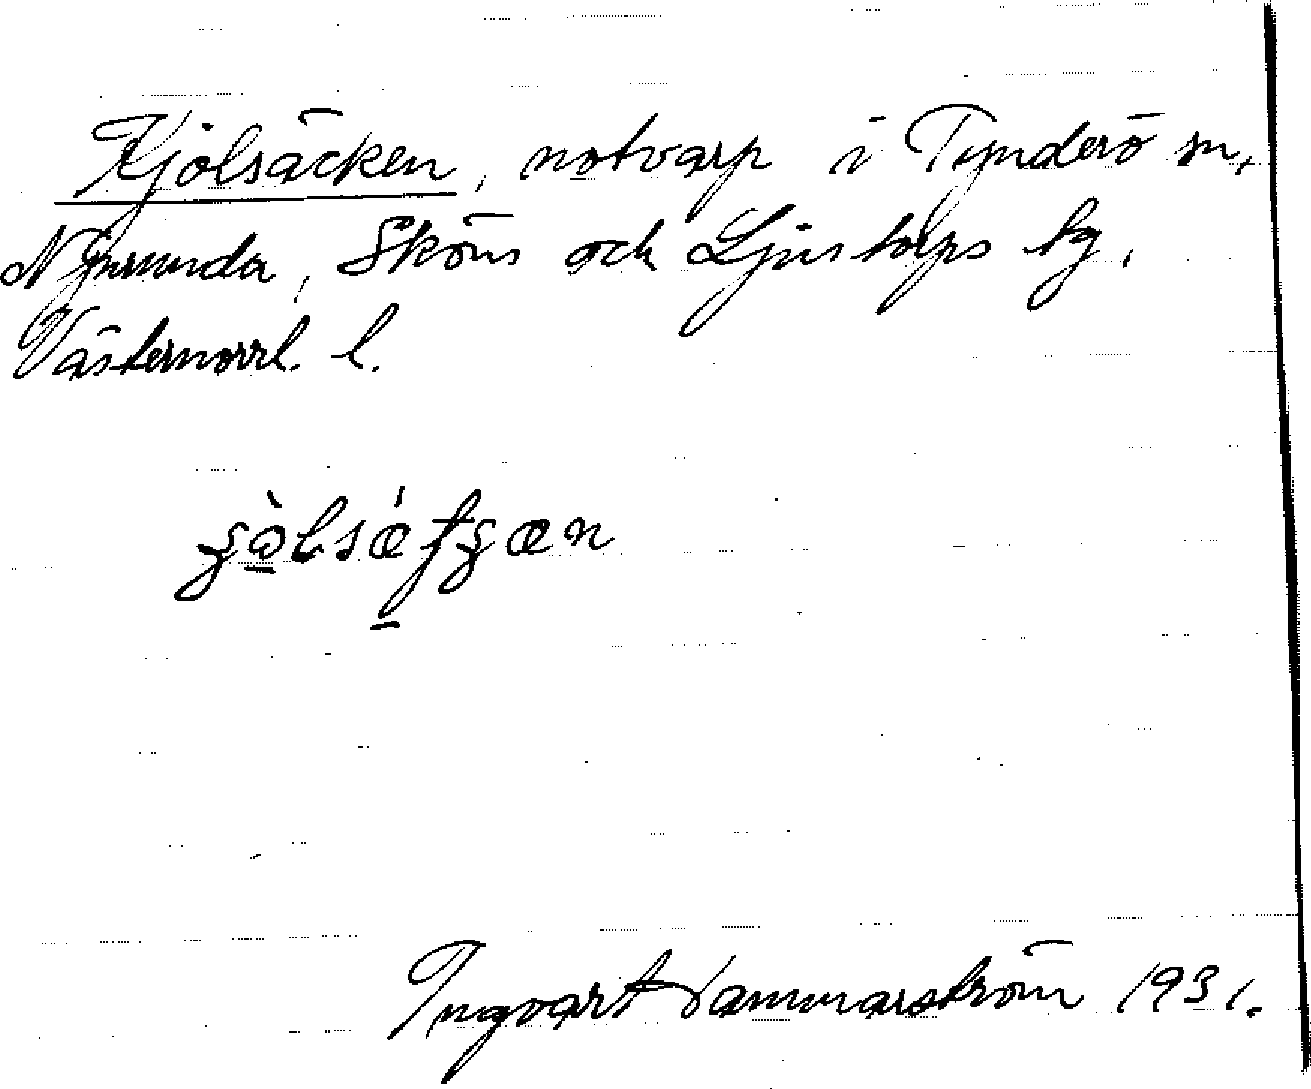 Kjölsäcken, notvarp i Tynderö sn,
Njurunda, Sköns och Ljustorps tg,
Västernorrl. l.
Ingvart Dammarström 1931.